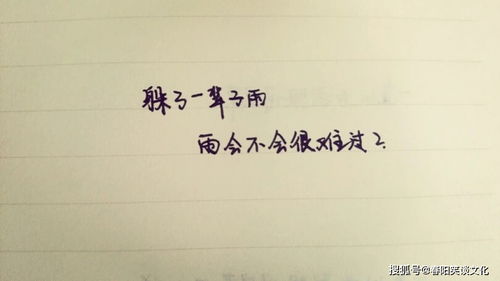 躲了一辈子雨
雨会不会很难过?
搜狐号@春阳笑谈文化